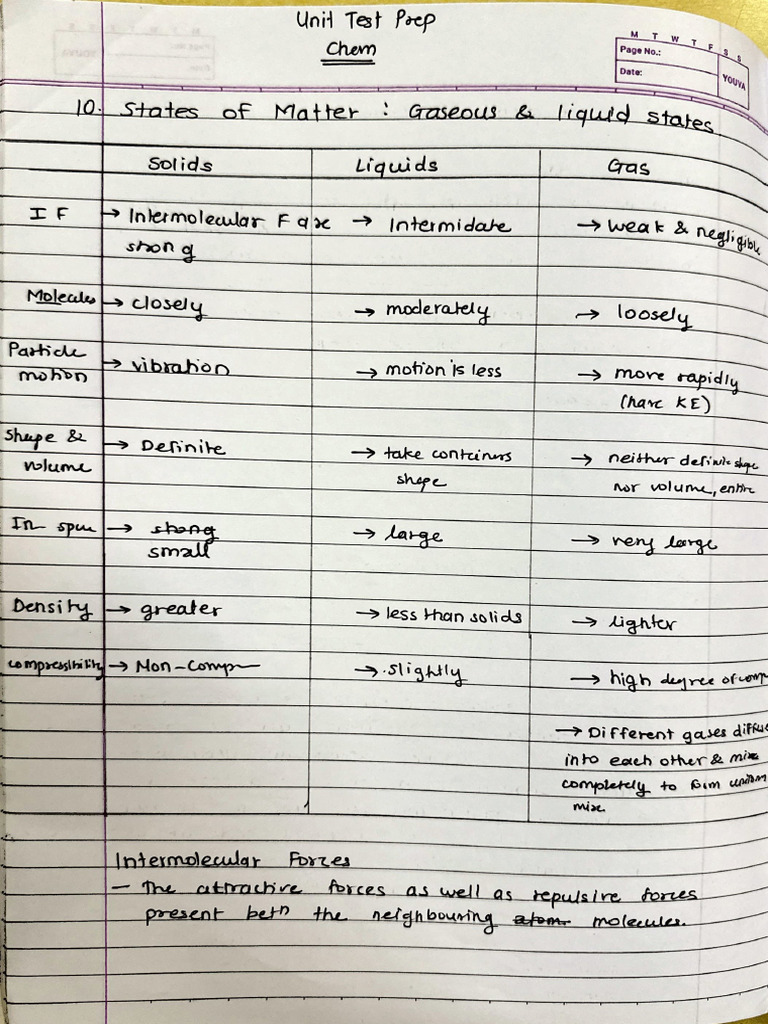 Unit Test Prep
Chem
M T W T F S S
Page No.:
Date:
YOUVA
10. States of Matter : Gaseous & liquid states
Solids Liquids Gas
I F → Intermolecular F are → Intermidate → weak & negligible
strong
Molecules → closely → moderately → loosely
Particle
motion → vibration → motion is less → more rapidly
(have KE)
Shape &
volume → Definite → take containers → neither definite shape
shape nor volume, entire
In → strong → large → very large
small
Density → greater → less than solids → lighter
compressibility → Non-comp → slightly → high degree of comp
→ Different gases diffuse
into each other & mix
completely to form uniform
mix
Intermolecular Forces
– The attractive forces as well as repulsive forces
present betn the neighbouring atom molecules.